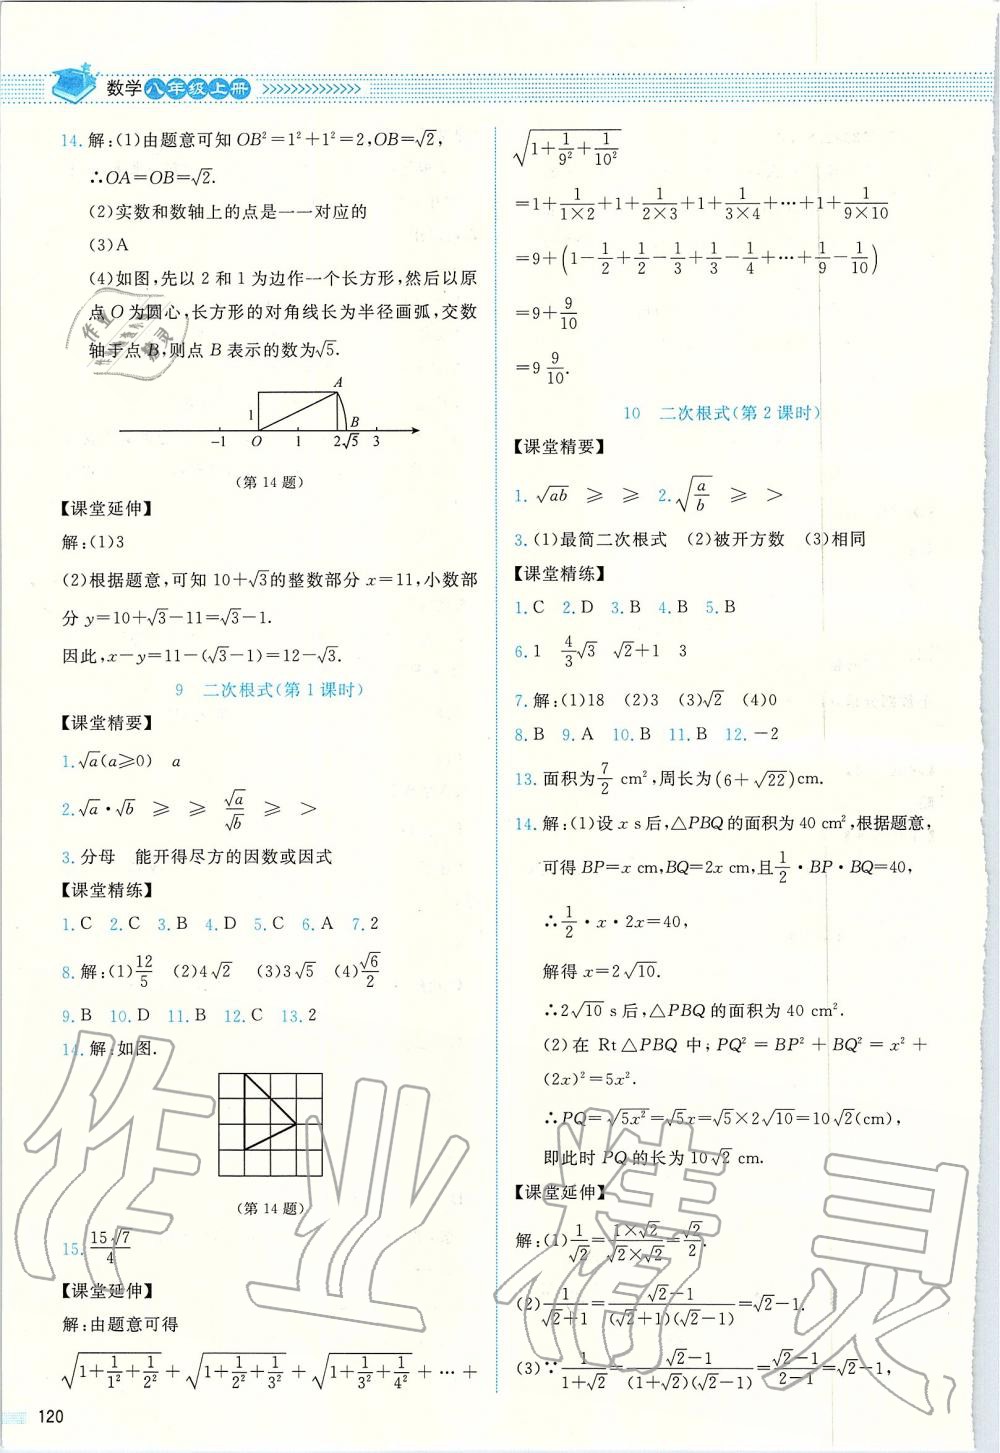 数学八年级上册
14. 解:(1)由题意可知 OB²=1²+1²=2,OB=√2,
∴OA=OB=√2.
(2)实数和数轴上的点是一一对应的
(3)A
(4)如图,先以 2 和 1 为边作一个长方形,然后以原
点 O 为圆心,长方形的对角线长为半径画弧,交数
轴于点 B,则点 B 表示的数为√5.
A
1
B
-1 O 1 2 √5 3
(第 14 题)
【课堂延伸】
解:(1)3
(2)根据题意,可知 10+√3的整数部分 x=11,小数部
分 y=10+√3-11=√3-1.
因此,x-y=11-(√3-1)=12-√3.
9 二次根式(第 1 课时)
【课堂精要】
1. √a(a≥0) a
2. √a·√b ≥ ≥ √a/√b ≥ >
3. 分母 能开得尽方的因数或因式
【课堂精练】
1. C 2. C 3. B 4. D 5. C 6. A 7. 2
8. 解:(1)12/5 (2)4√2 (3)3√5 (4)√6/2
9. B 10. D 11. B 12. C 13. 2
14. 解:如图.
(第 14 题)
15. 15√7/4
【课堂延伸】
解:由题意可得
√(1+1/1²+1/2²)+√(1+1/2²+1/3²)+√(1+1/3²+1/4²)+···+
120
√(1+1/9²+1/10²)
=1+1/(1×2)+1+1/(2×3)+1+1/(3×4)+···+1+1/(9×10)
=9+(1-1/2+1/2-1/3+1/3-1/4+···+1/9-1/10)
=9+9/10
=9 9/10.
10 二次根式(第 2 课时)
【课堂精要】
1. √ab ≥ ≥ 2. √(a/b) ≥ >
3. (1)最简二次根式 (2)被开方数 (3)相同
【课堂精练】
1. C 2. D 3. B 4. B 5. B
6. 1 4/3√3 √2+1 3
7. 解:(1)18 (2)3 (3)√2 (4)0
8. B 9. A 10. B 11. B 12. -2
13. 面积为7/2 cm²,周长为(6+√22)cm.
14. 解:(1)设 x s后,△PBQ的面积为 40 cm²,根据题意,
可得 BP=x cm,BQ=2x cm,且1/2·BP·BQ=40,
∴1/2·x·2x=40,
解得 x=2√10.
∴2√10 s后,△PBQ的面积为 40 cm².
(2)在 Rt△PBQ 中,PQ²=BP²+BQ²=x²+
(2x)²=5x².
∴PQ=√5x²=√5x=√5×2√10=10√2(cm),
即此时 PQ 的长为 10√2 cm.
【课堂延伸】
解:(1)1/√2=(1×√2)/(√2×√2)=√2/2.
(2)1/(√2+1)=(√2-1)/((√2+1)(√2-1))=√2-1.
(3)∵1/(1+√2)=(√2-1)/((1+√2)(√2-1))=(√2-1)/(2-1)=√2-1,
作业精灵